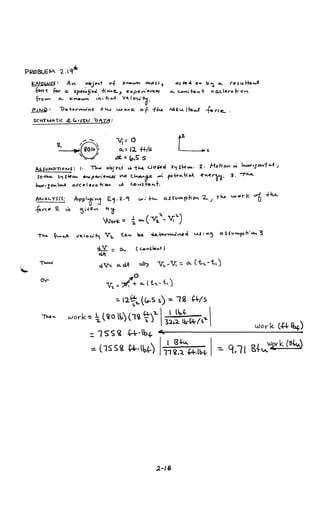 PROBLEM 2.19*
KNOWN: An object of known mass, acted on by a resultant
force for a specified time, experiences a constant acceleration
from a known initial velocity.
FIND: Determine the work of the resultant force.
SCHEMATIC & GIVEN DATA:
V₁ = 0
aₓ = 12 ft/s
Δt = 6.5 s
R
80 lb
z
x
ASSUMPTIONS: 1. The object is the closed system. 2. Motion is horizontal,
so the system experiences no change in potential energy. 3. The
horizontal acceleration is constant.
ANALYSIS: Applying Eq. 2.9 with assumption 2, the work of the
force R is given by
Work = 1/2 m (V₂² - V₁²)
The final velocity V₂ can be determined using assumption 3
dV/dt = a (constant)
Thus
dV = a dt ⇒ V₂ - V₁ = a (t₂ - t₁)
Or
V₂ = V₁⁰ + a (t₂ - t₁)
= 12 ft/s² (6.5 s) = 78 ft/s
Then work = 1/2 (80 lb) (78 ft/s)² | 1 lbf / 32.2 lb·ft/s² |
work (ft·lbf)
= 7558 ft·lbf
= (7558 ft·lbf) | 1 Btu / 778.2 ft·lbf | = 9.71 Btu
work (Btu)
2-18